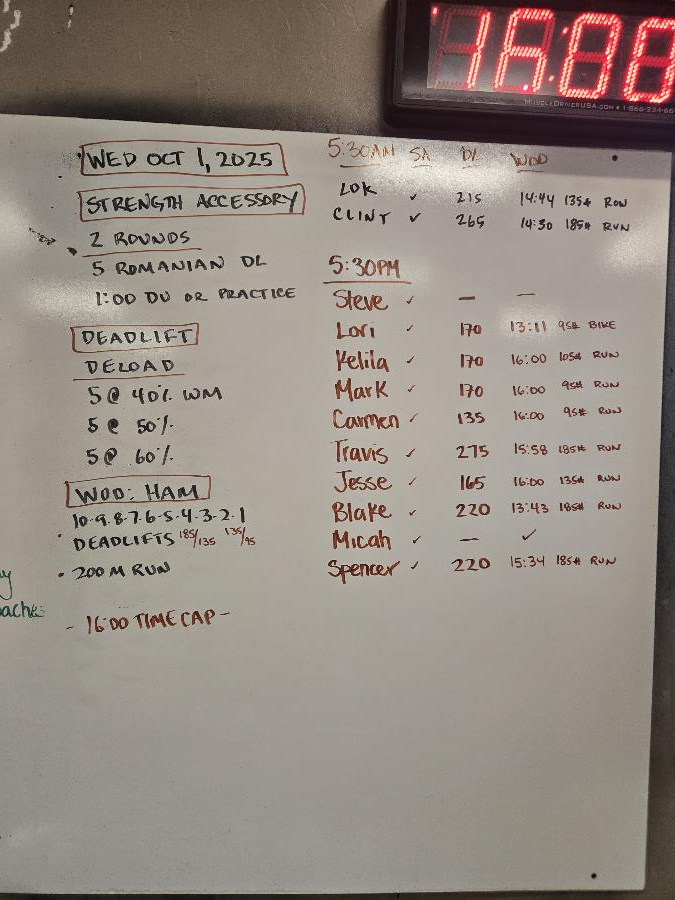 16:00
MuscleDriverUSA.com • 1-866-
WED OCT 1, 2025
STRENGTH ACCESSORY
2 ROUNDS
5 ROMANIAN DL
1:00 DU OR PRACTICE
DEADLIFT
DELOAD
5 @ 40% WM
5 @ 50%
5 @ 60%
WOD: HAM
10-9-8-7-6-5-4-3-2-1
• DEADLIFTS 185/135 135/95
• 200 M RUN
- 16:00 TIME CAP -
5:30AM SA DL WOD
LOK ✓ 215 14:44 135# ROW
CLINT ✓ 265 14:30 185# RUN
5:30PM
Steve ✓ — —
Lori ✓ 170 13:11 95# BIKE
Kelila ✓ 170 16:00 105# RUN
Mark ✓ 170 16:00 95# RUN
Carmen ✓ 135 16:00 95# RUN
Travis ✓ 275 15:58 185# RUN
Jesse ✓ 165 16:00 135# RUN
Blake ✓ 220 13:43 185# RUN
Micah ✓ — ✓
Spencer ✓ 220 15:34 185# RUN